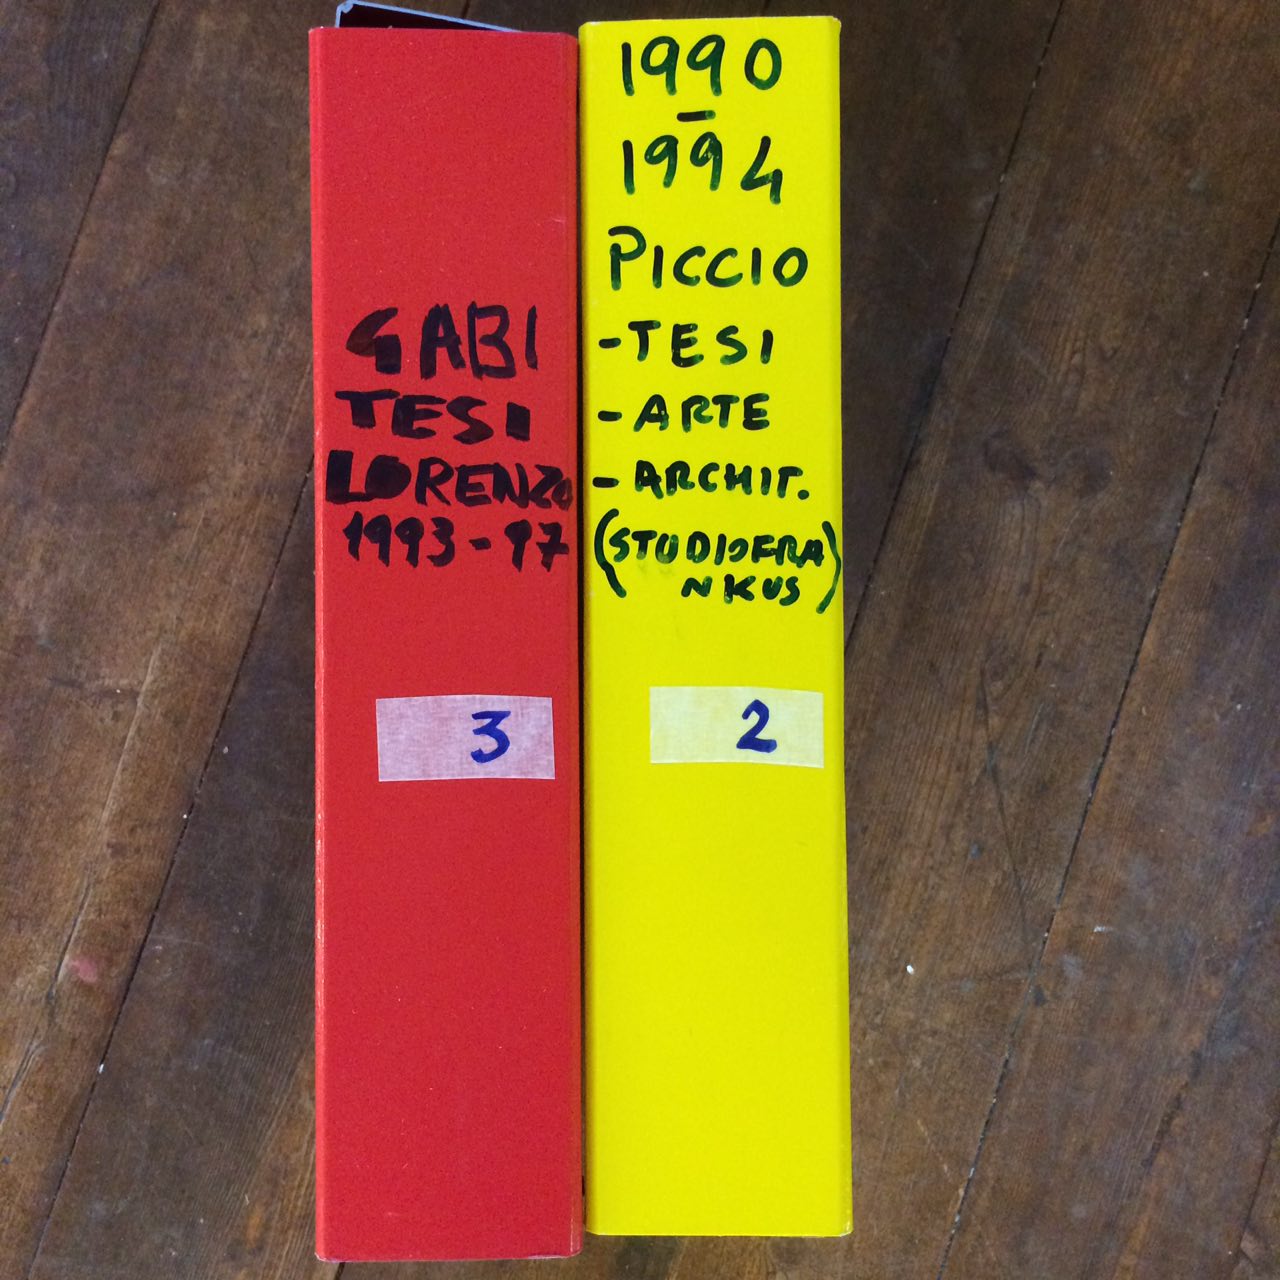 GABI
TESI
LORENZO
1993-97
3
1990
-
1994
PICCIO
-TESI
-ARTE
-ARCHIT.
(STUDIOFRA
NKUS)
2